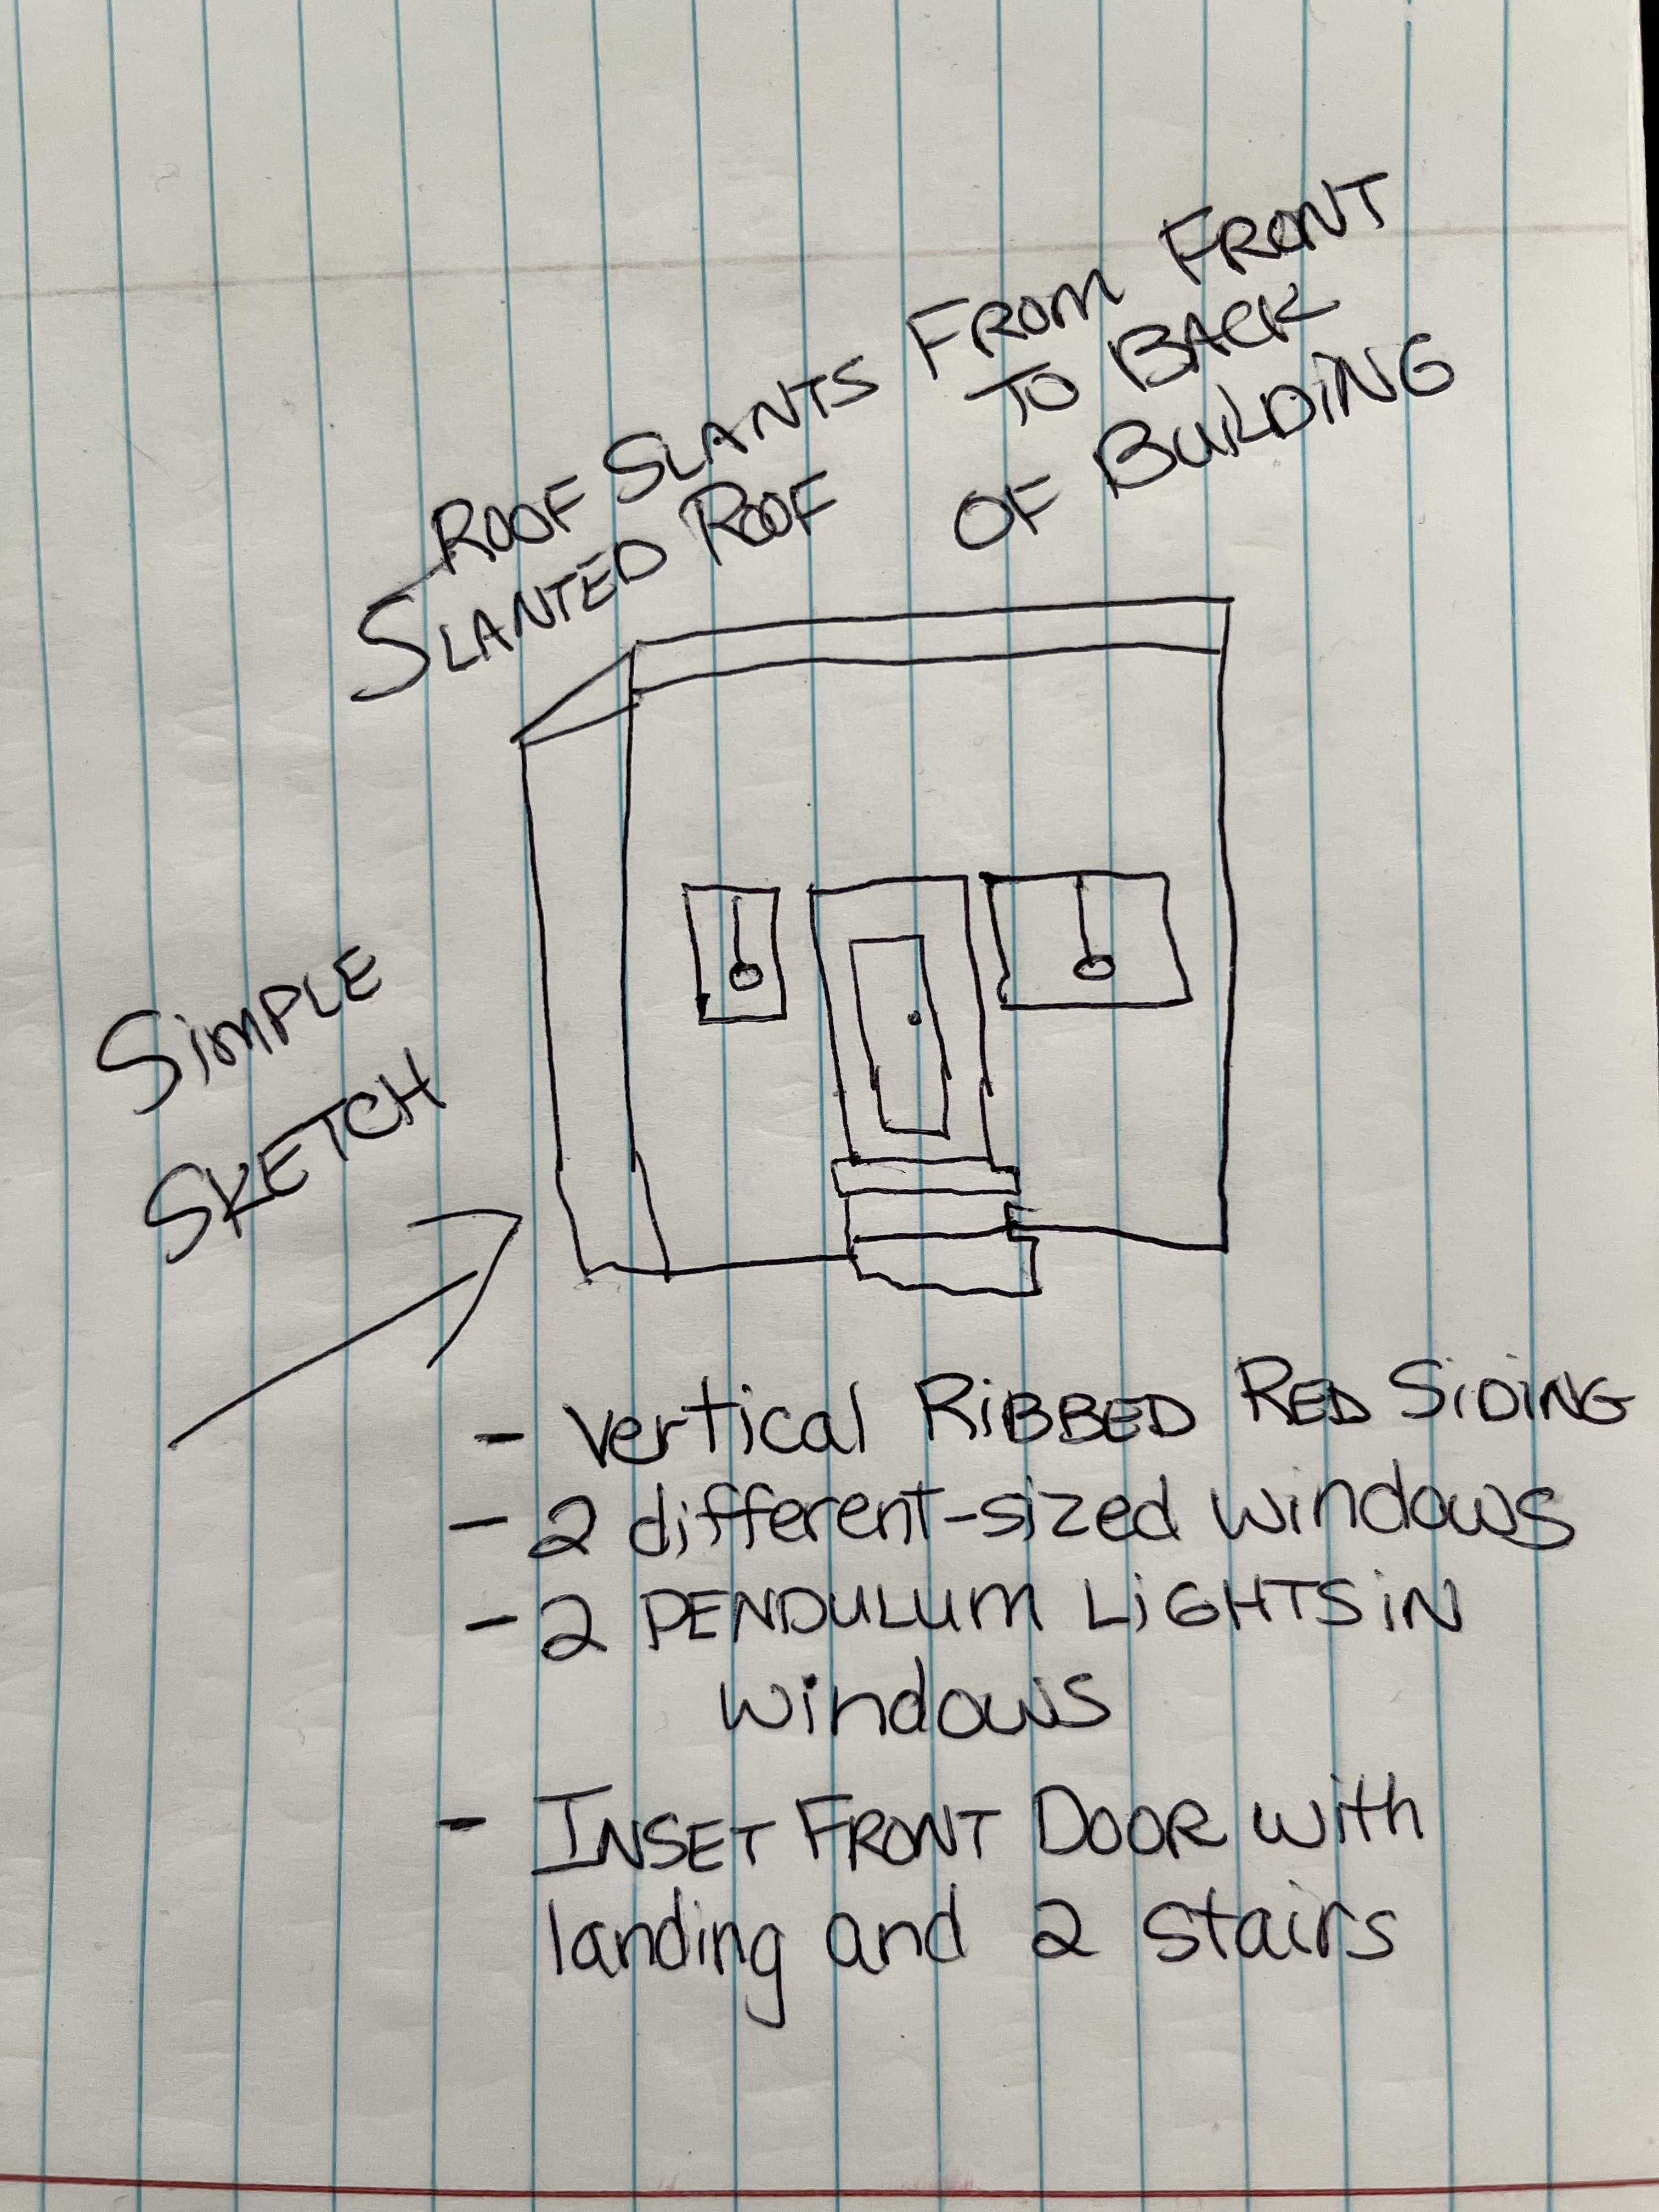 ROOF SLANTS FROM FRONT
TO BACK
SLANTED ROOF OF BUILDING
SIMPLE
SKETCH
- Vertical RIBBED RED SIDING
- 2 different-sized windows
- 2 PENDULUM LIGHTS IN
windows
- INSET FRONT DOOR with
landing and 2 stairs